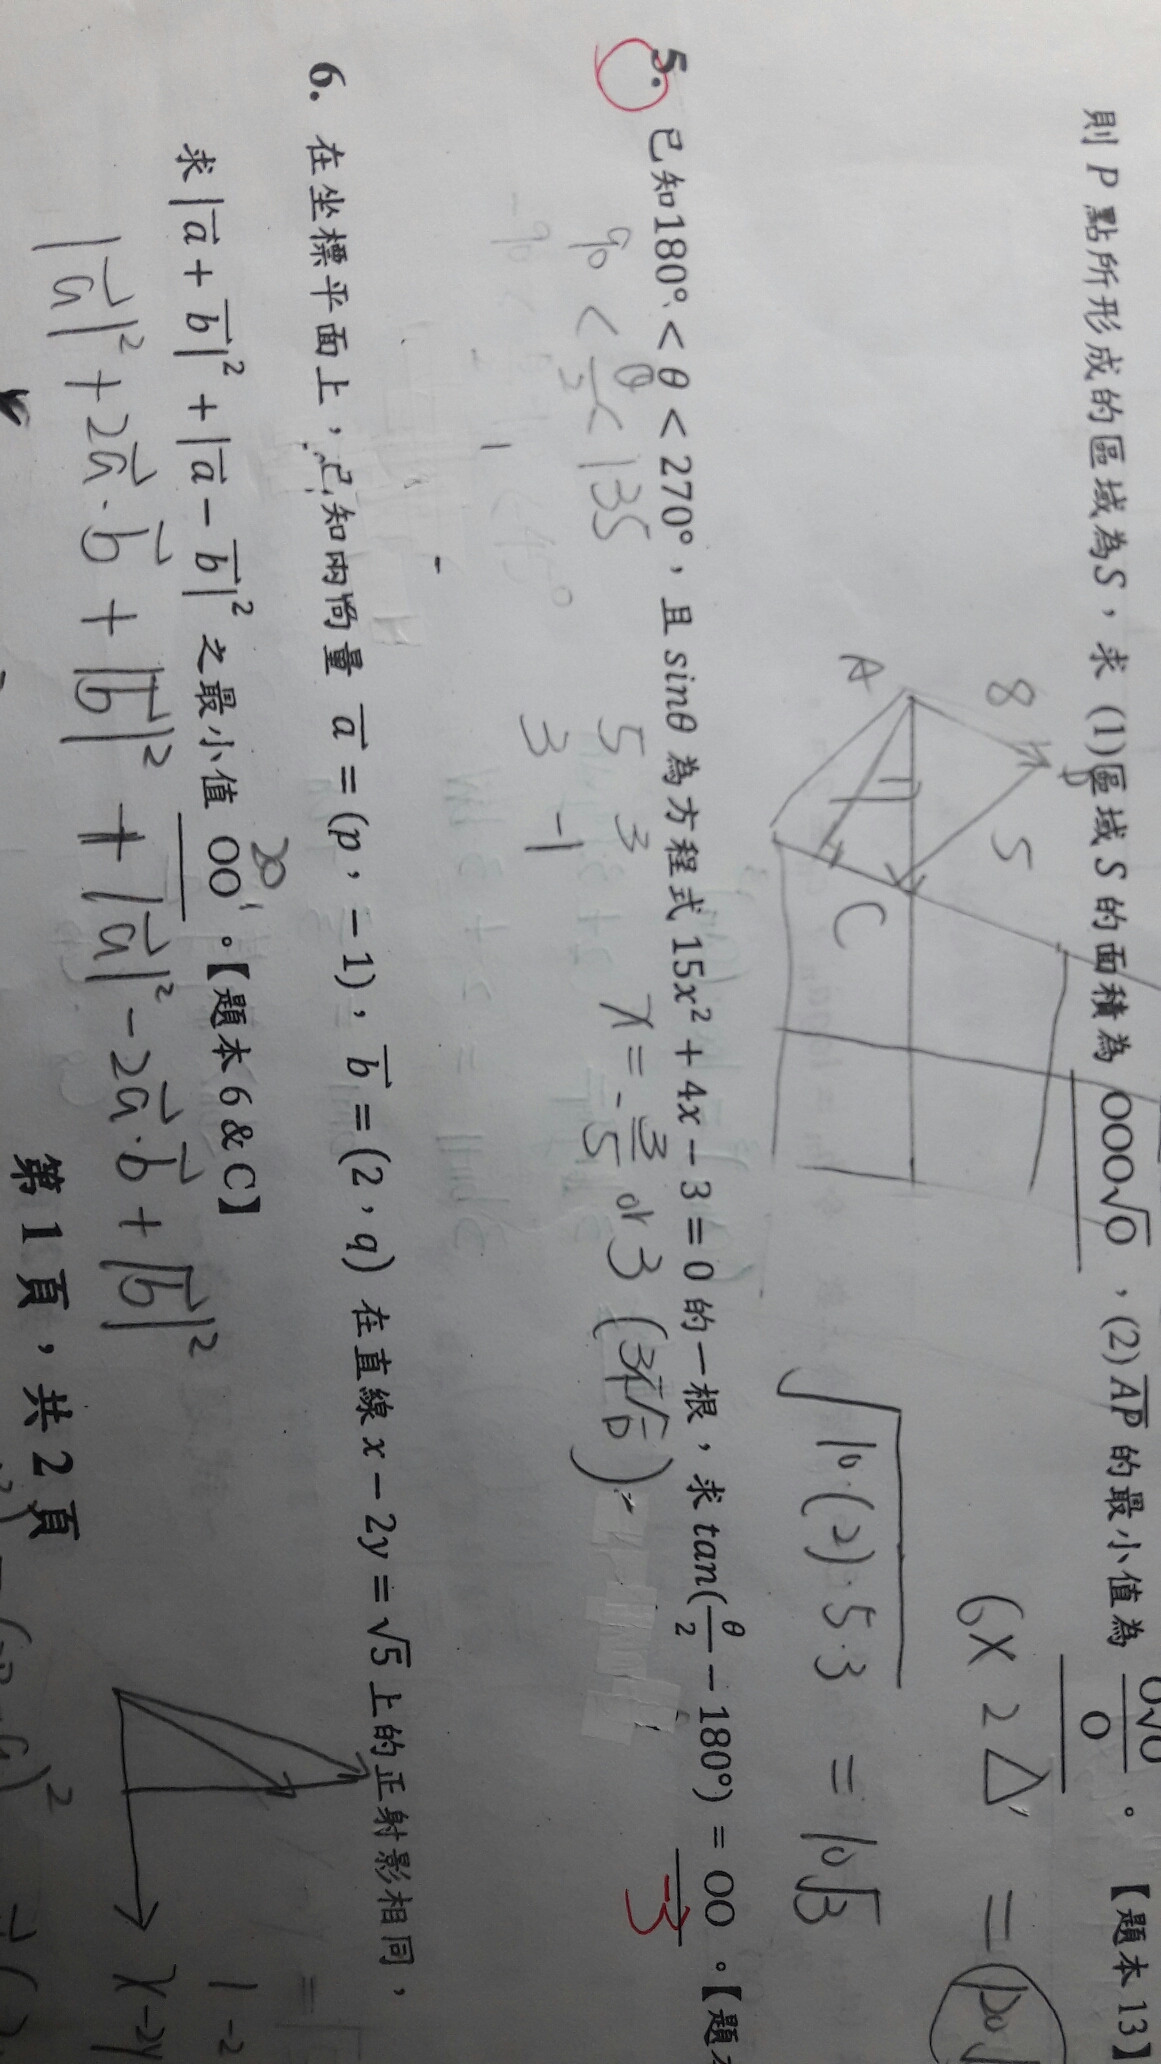 則 P 點所形成的區域為S，求 (1)區域 S 的面積為 OOO√O ，(2) AP 的最小值為 O√O/O 。【題本13】
6×2△ =
8
B
5
A
C
√10·(2)·5·3 = 10√3
5. 已知180° < θ < 270°，且 sinθ 為方程式 15x² + 4x − 3 = 0 的一根，求 tan(θ/2 − 180°) = OO 。【題
-3
90 < θ/2 < 135
5 3
3 -1
x = -3/5 or
6. 在坐標平面上，已知兩向量 a = (p，−1)，b = (2，q) 在直線 x − 2y = √5 上的正射影相同，
求 |a + b|² + |a − b|² 之最小值 OO 。【題本6 & C】
20
|a|² + 2a·b + |b|² + |a|² - 2a·b + |b|²
1 -2
x-2y
第 1 頁，共 2 頁